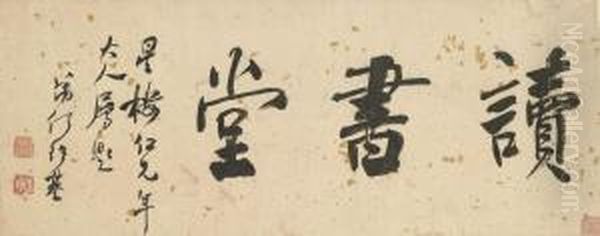 讀書堂
星樵仁兄年
大人屬題
弟何紹基
NiceArtGallery.com